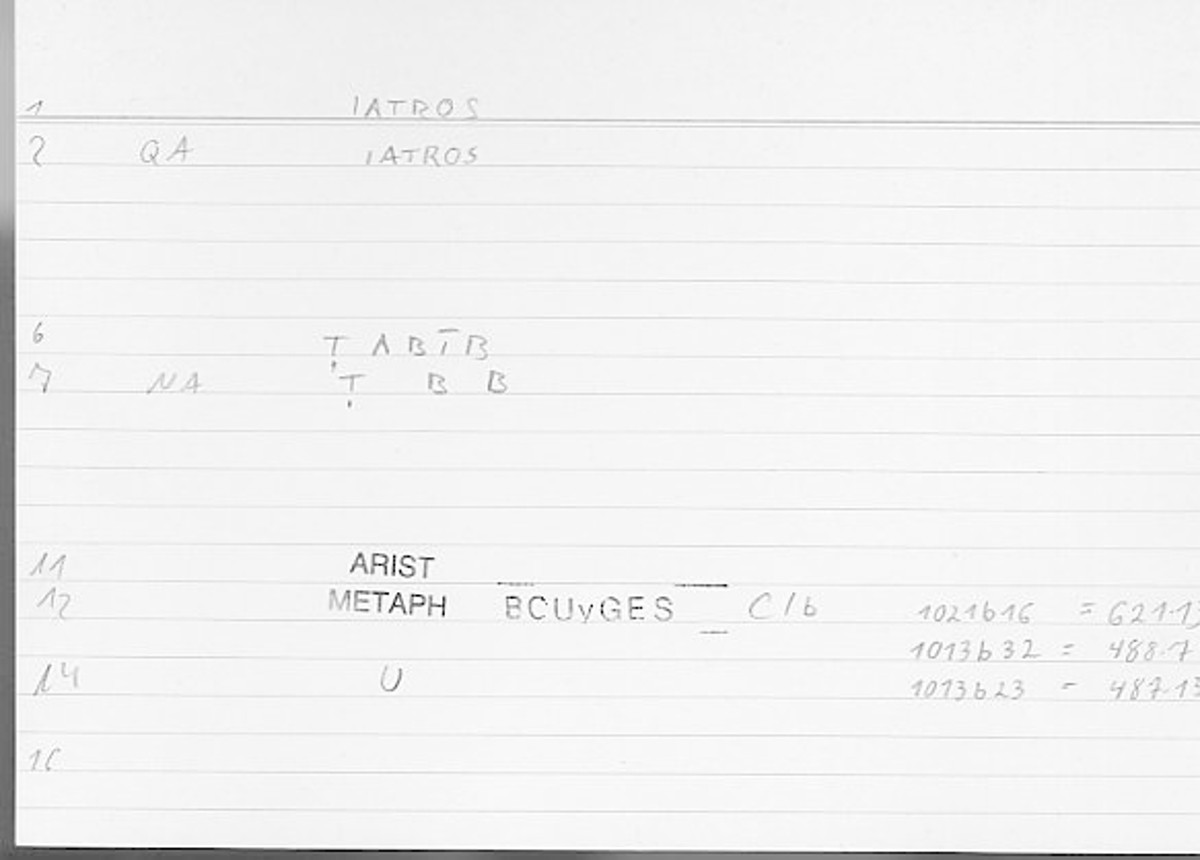 1 IATROS
2 QA IATROS
6 ṬABĪB
7 NA Ṭ B B
11 ARIST
12 METAPH BCUyGES C16 1021b16 = 621.1
1013b32 = 488.7
14 U 1013b23 = 487.13